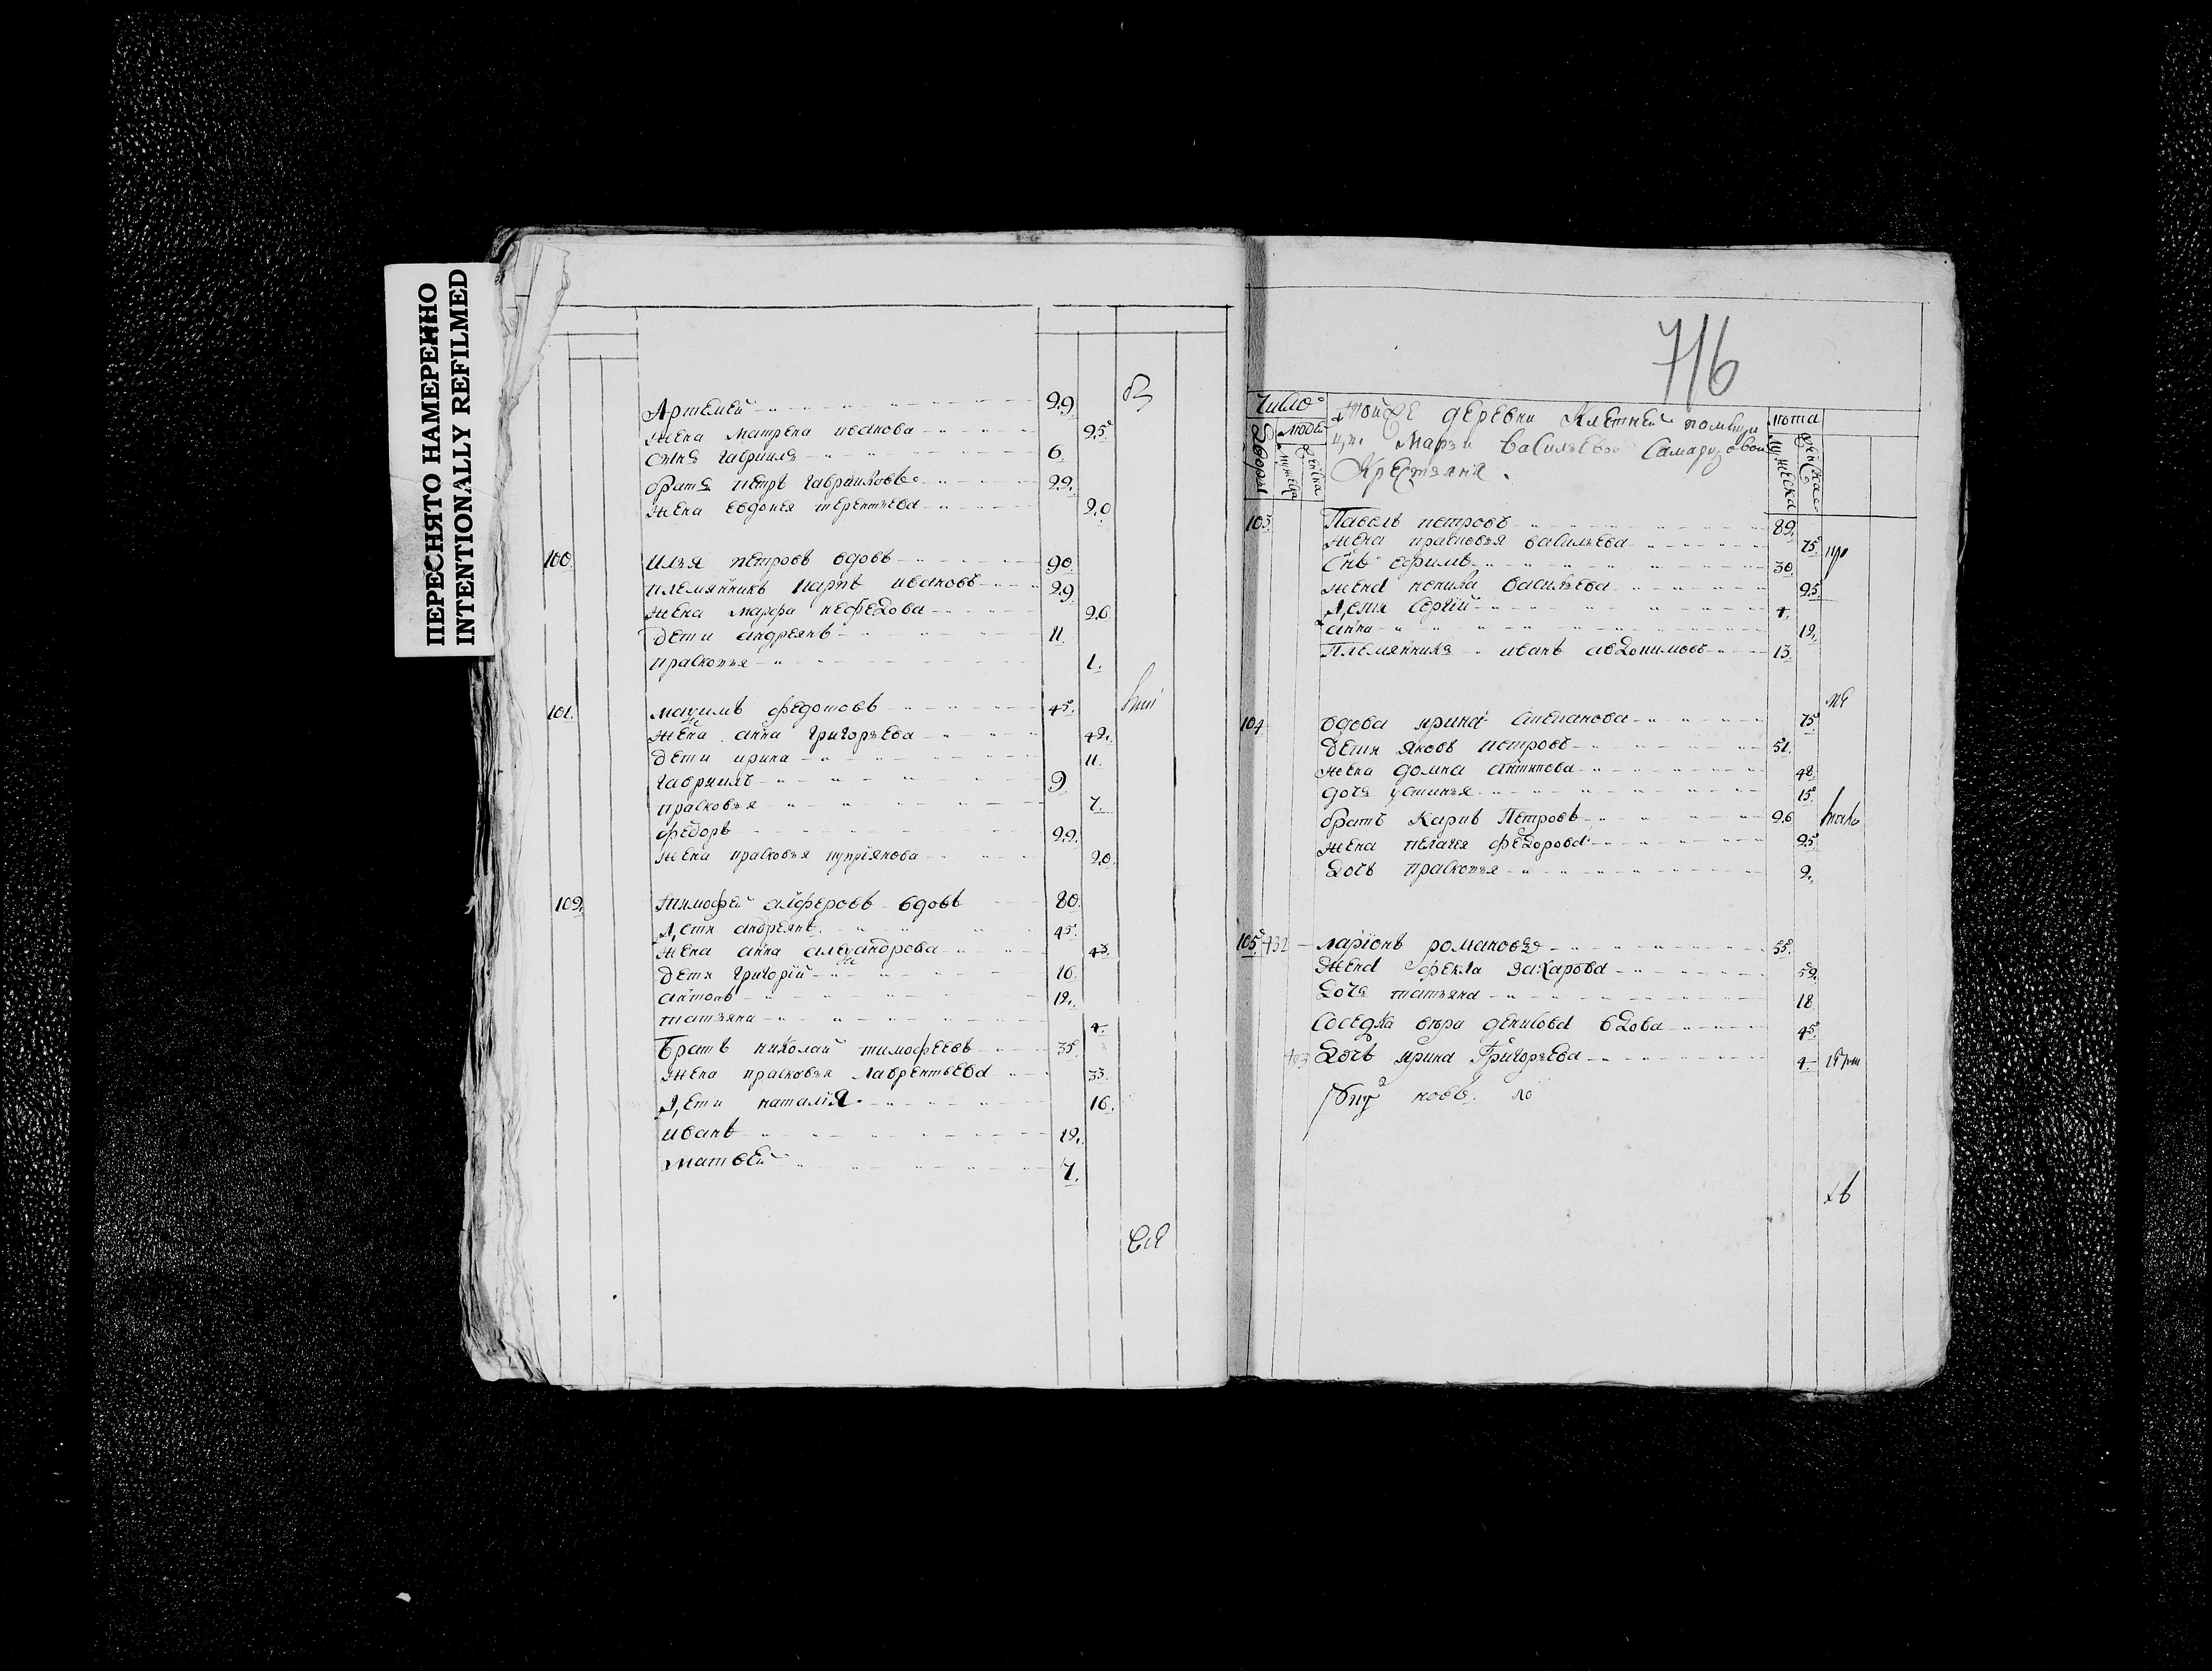 ПЕРЕСНЯТО НАМЕРЕННО
INTENTIONALLY REFILMED
Артемей 29
жена матрена иванова 25
сынъ гаврила 6
братъ петръ гавриловъ 22
жена евдокея терентьева 20
100 илья петровъ вдовъ 90
племянникъ карпъ ивановъ 29
жена марфа нефедова 26
дети андреянъ 11
прасковья 1
101 маѯимъ федотовъ 45
жена анна григорьева 42
дети ирина 11
гаврилъ 9
прасковья 7
федоръ 22
жена прасковья куприянова 20
102 тимофей алферовъ вдовъ 80
дети андреянъ 45
жена анна алеѯандрова 43
дети григорiй 16
антонъ 12
татьяна 4
братъ николай тимофеевъ 35
жена прасковья лаврентьева 33
дети наталiя 16
иванъ 12
матвей 7
716
число
дворовъ
людей
тойже деревни Клетней помещи
цы Марьи Васильевой Самариновой
крестьяня
лета
мужеска
женска
103 Павелъ петровъ 89
жена прасковья васильева 75
Снъ ефимъ 30
жена васильева 25
дети Сергiй 4
анна 12
Племянникъ иванъ авдокимовъ 13
104 вдова ирина степанова 75
дети яковъ петровъ 51
жена домна антипова 48
дочь устинья 15
братъ Карпъ Петровъ 26
жена пелагея федорова 25
дочь прасковья 2
105 432 ларiонъ романовъ 55
жена фекла захарова 52
дочь татьяна 18
соседка вера денисова вдова 45
дочь ирина Григорьева 4